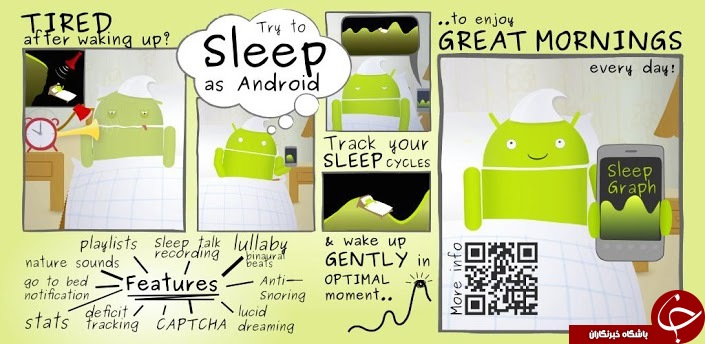 TIRED
after waking up?
Try to
Sleep
as Android
Track your
SLEEP CYCLES
& wake up
GENTLY in
OPTIMAL
moment..
..to enjoy
GREAT MORNINGS
every day!
Sleep
Graph
More info
Features
playlists
sleep talk
recording
lullaby
binaural
beats
nature sounds
go to bed
notification
Anti-
Snoring
stats
deficit
tracking
CAPTCHA
lucid
dreaming
باشگاه خبرنگاران